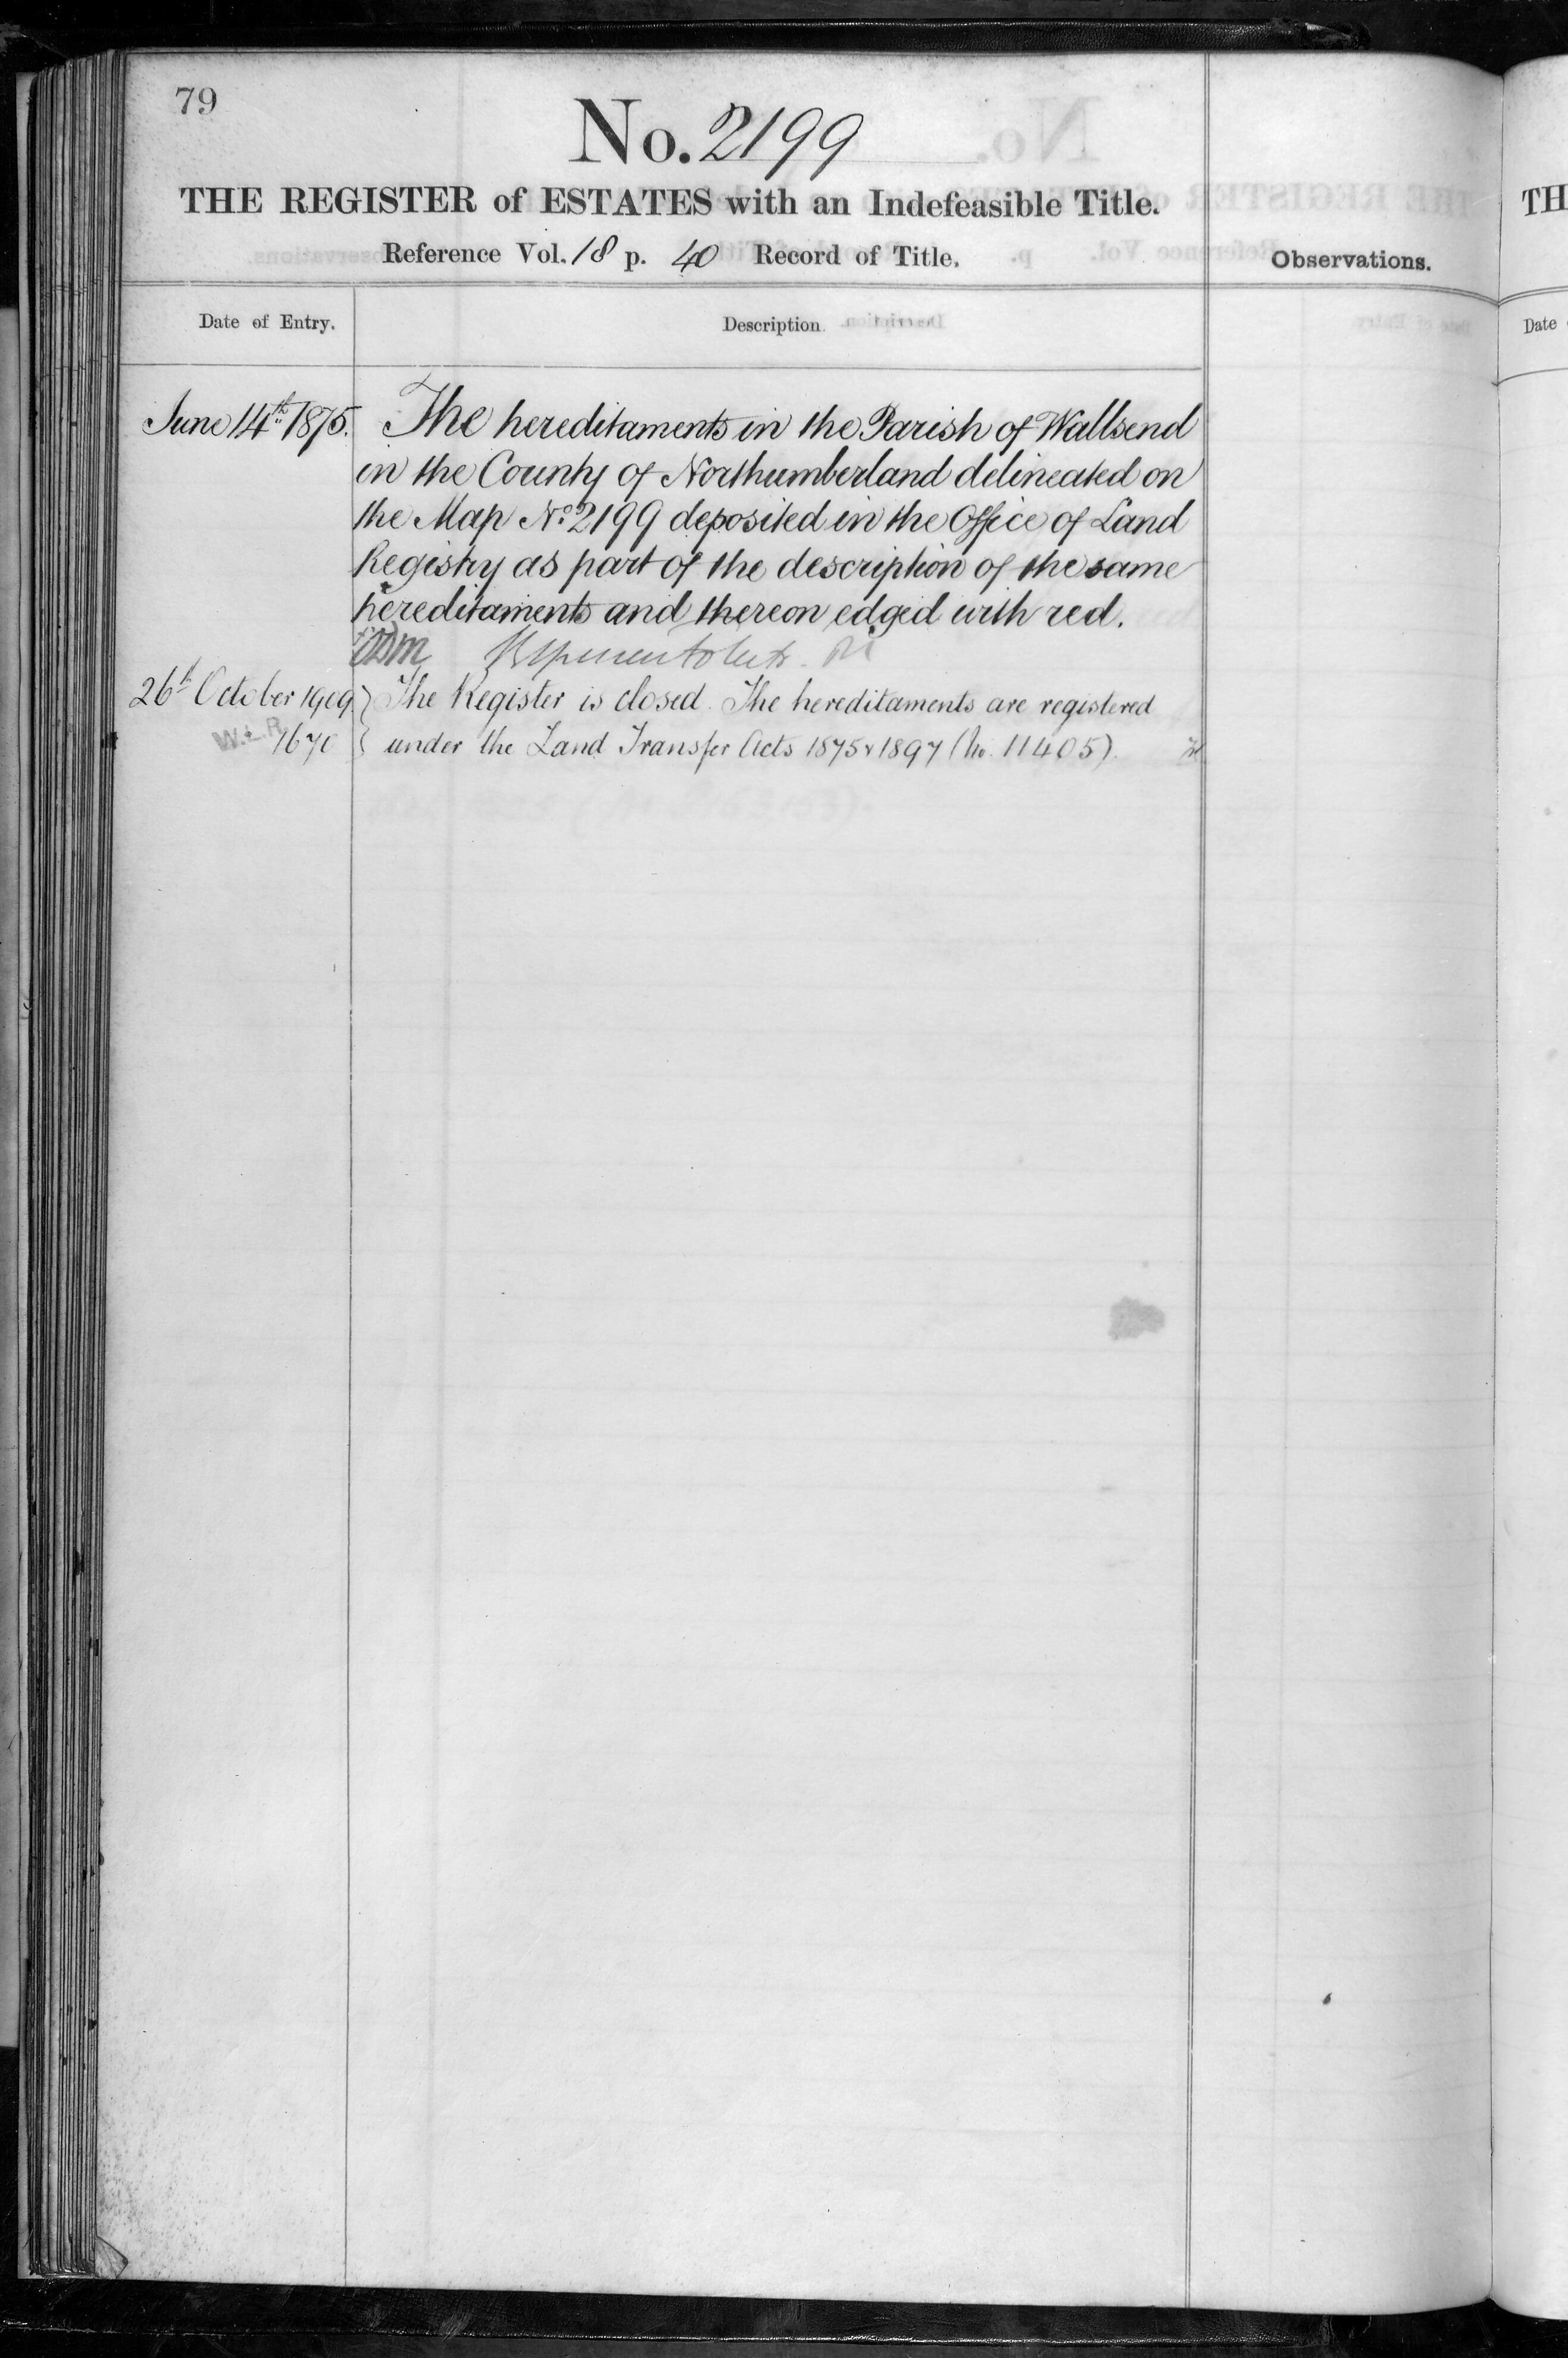 79
No. 2199
THE REGISTER of ESTATES with an Indefeasible Title.
Reference Vol. 18 p. 40 Record of Title.
Observations.
Date of Entry.
Description.
June 14th 1875. The hereditaments in the Parish of Wallsend
in the County of Northumberland delineated on
the Map No. 2199 deposited in the Office of Land
Registry as part of the description of the same
hereditaments and thereon edged with red.
26th October 1909 } The Register is closed. The hereditaments are registered
W.L.R. 1670 { under the Land Transfer Acts 1875 & 1897 (No. 11405).
TH
Date